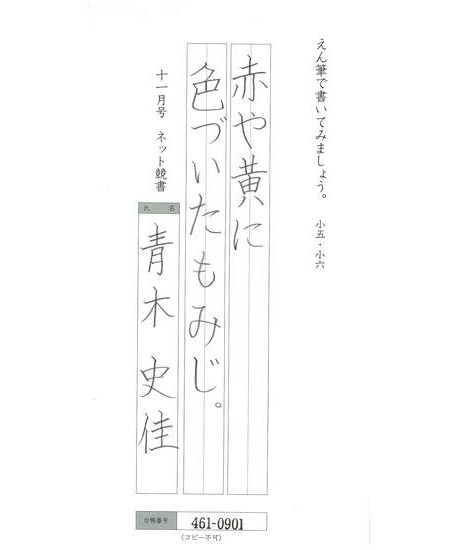 えん筆で書いてみましょう。 小五・小六
赤や黄に
色づいたもみじ。
十一月号 ネット競書
氏名
青木史佳
台帳番号 461-0901
(コピー不可)